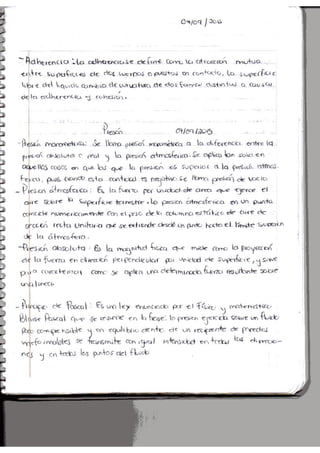 04/09/2015
- Adherencia: La adherencia se define como la atracción mutua
entre superficies de dos cuerpos opuestos en contacto. La superficie
libre del líquido cambia de curvatura de dos fuerzas distintas a causa
de la adherencia y cohesión.
Presión 04/09/2015
- Presión manométrica: Se llama presión manométrica a la diferencia entre la
presión absoluta o real y la presión atmosférica. Se aplica tan solo en
aquellos casos en que la presión es superior a la presión atmos-
férica, pues cuando esta cantidad es negativa se llama presión de vacío.
- Presión atmosférica: Es la fuerza por unidad de área que ejerce el
aire sobre la superficie terrestre. La presión atmosférica en un punto
coincide numéricamente con el peso de la columna estática de aire de
sección recta unitaria que se extiende desde un punto hasta el límite superior
de la atmósfera.
- Presión absoluta: Es la magnitud física que mide como la proyección
de la fuerza en dirección perpendicular por unidad de superficie, y sirve
para caracterizar como se aplica una determinada fuerza resultante sobre
una línea.
- Principio de Pascal: Es una ley enunciada por el físico y matemático
Blaise Pascal que se resume en la frase: la presión ejercida sobre un fluido
poco compresible y en equilibrio dentro de un recipiente de paredes
indeformables se transmite con igual intensidad en todas las direccio-
nes y en todos los puntos del fluido